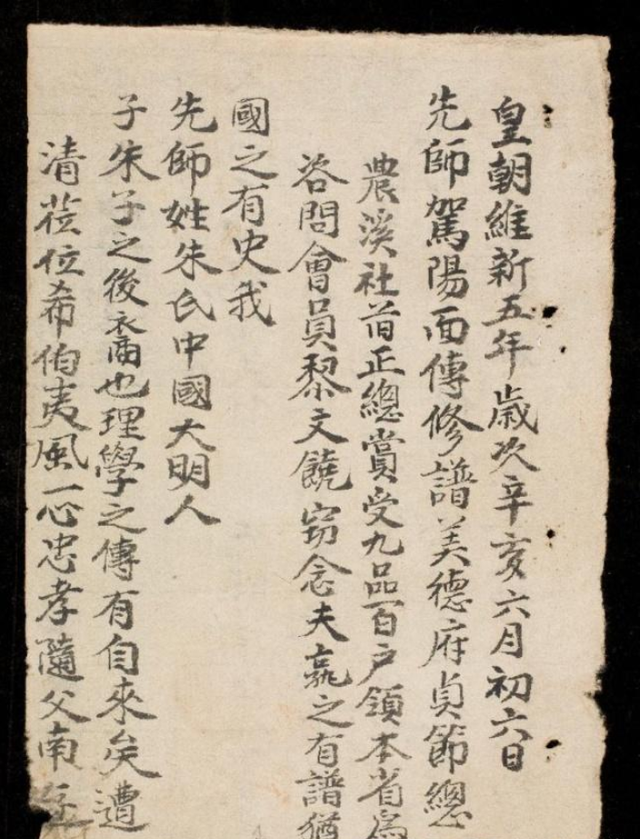 皇朝維新五年歲次辛亥六月初六日
先師駕陽面傳修譜美德府貞節總
農溪社前正總賞受九品百戶領本省為
咨問會員黎文饒窃念夫家之有譜猶
國之有史我
先師姓朱氏中國大明人
子朱子之後裔也理學之傳有自來矣遭
清蒞位希伯夷風一心忠孝隨父南